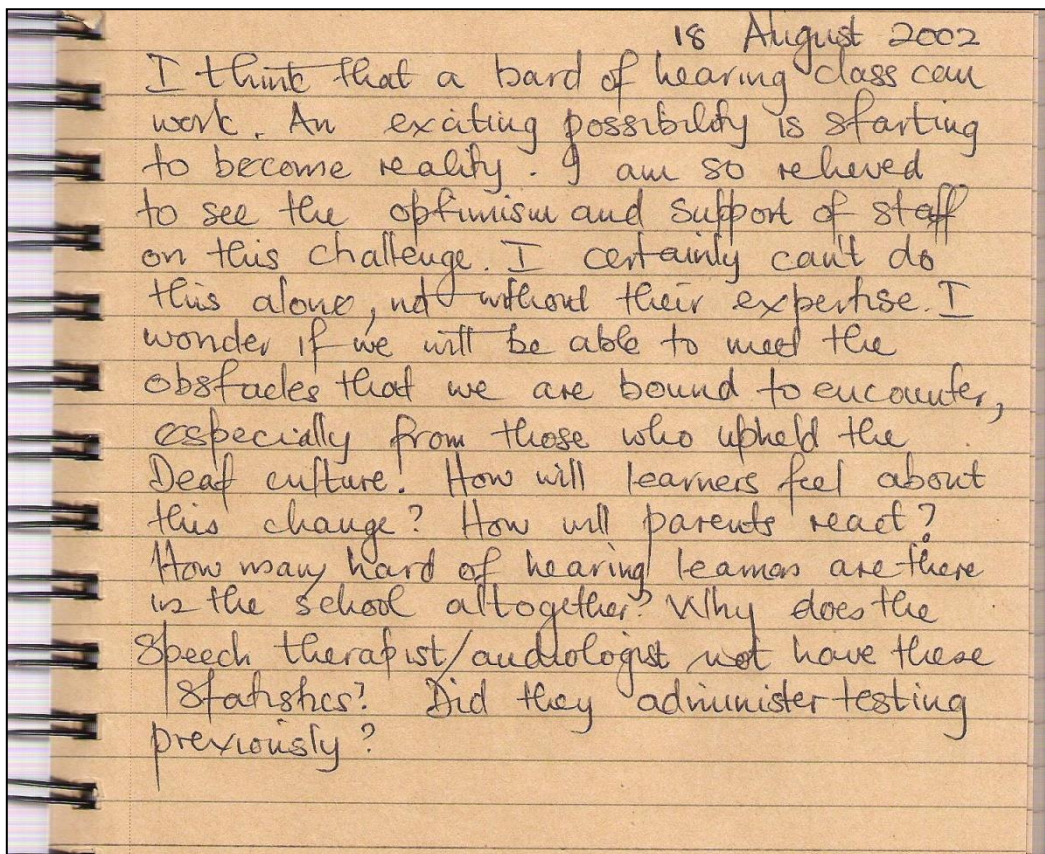 18 August 2002
I think that a hard of hearing class can
work. An exciting possibility is starting
to become reality. I am so relieved
to see the optimism and support of staff
on this challenge. I certainly can't do
this alone, not without their expertise. I
wonder if we will be able to meet the
obstacles that we are bound to encounter,
especially from those who uphold the
Deaf culture! How will learners feel about
this change? How will parents react?
How many hard of hearing learners are there
in the school altogether? Why does the
speech therapist/audiologist not have these
statistics? Did they administer testing
previously?